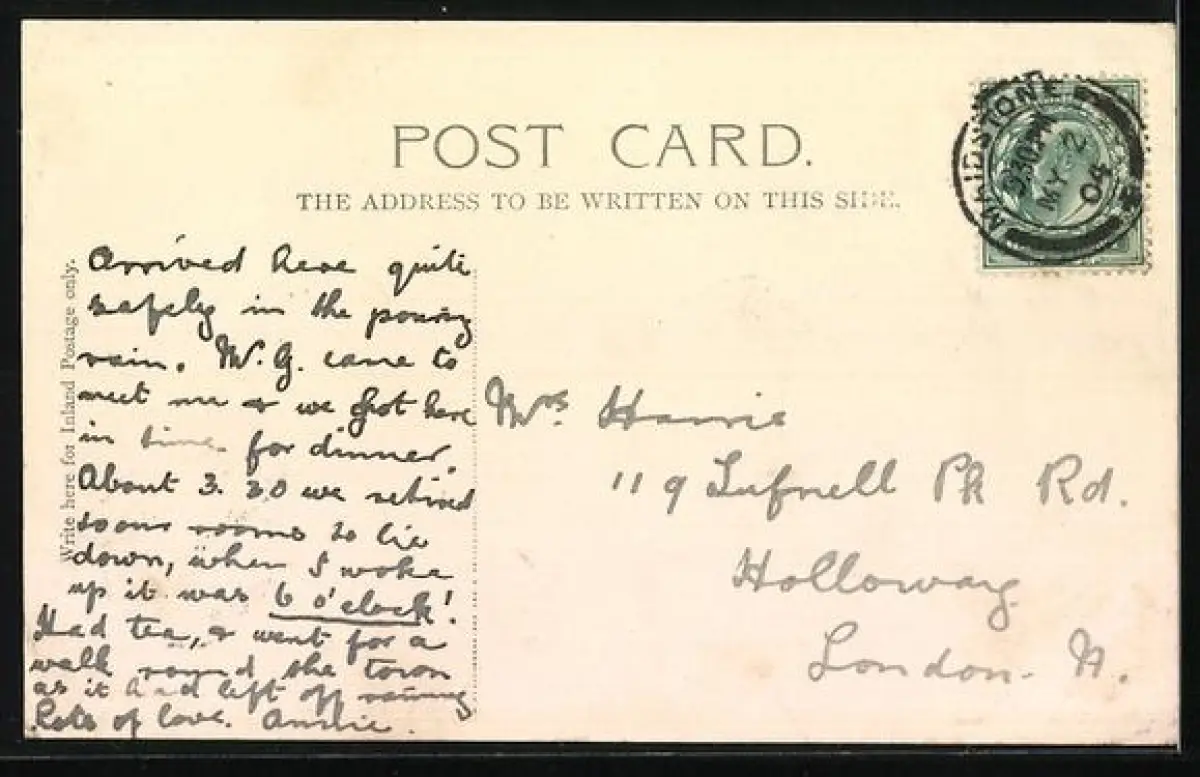 POST CARD.
THE ADDRESS TO BE WRITTEN ON THIS SIDE.
MAIDSTONE
9.30PM
MY 2
04
Write here for Inland Postage only.
Arrived here quite
safely in the pouring
rain. W. G. came to
meet me & we got here
in time for dinner.
About 3.30 we retired
to our rooms to lie
down, when I woke
up it was 6 o'clock!
Had tea, & went for a
walk round the town
as it had left off raining
Lots of love.
Mrs Harris
119 Tufnell Pk Rd.
Holloway
London. N.